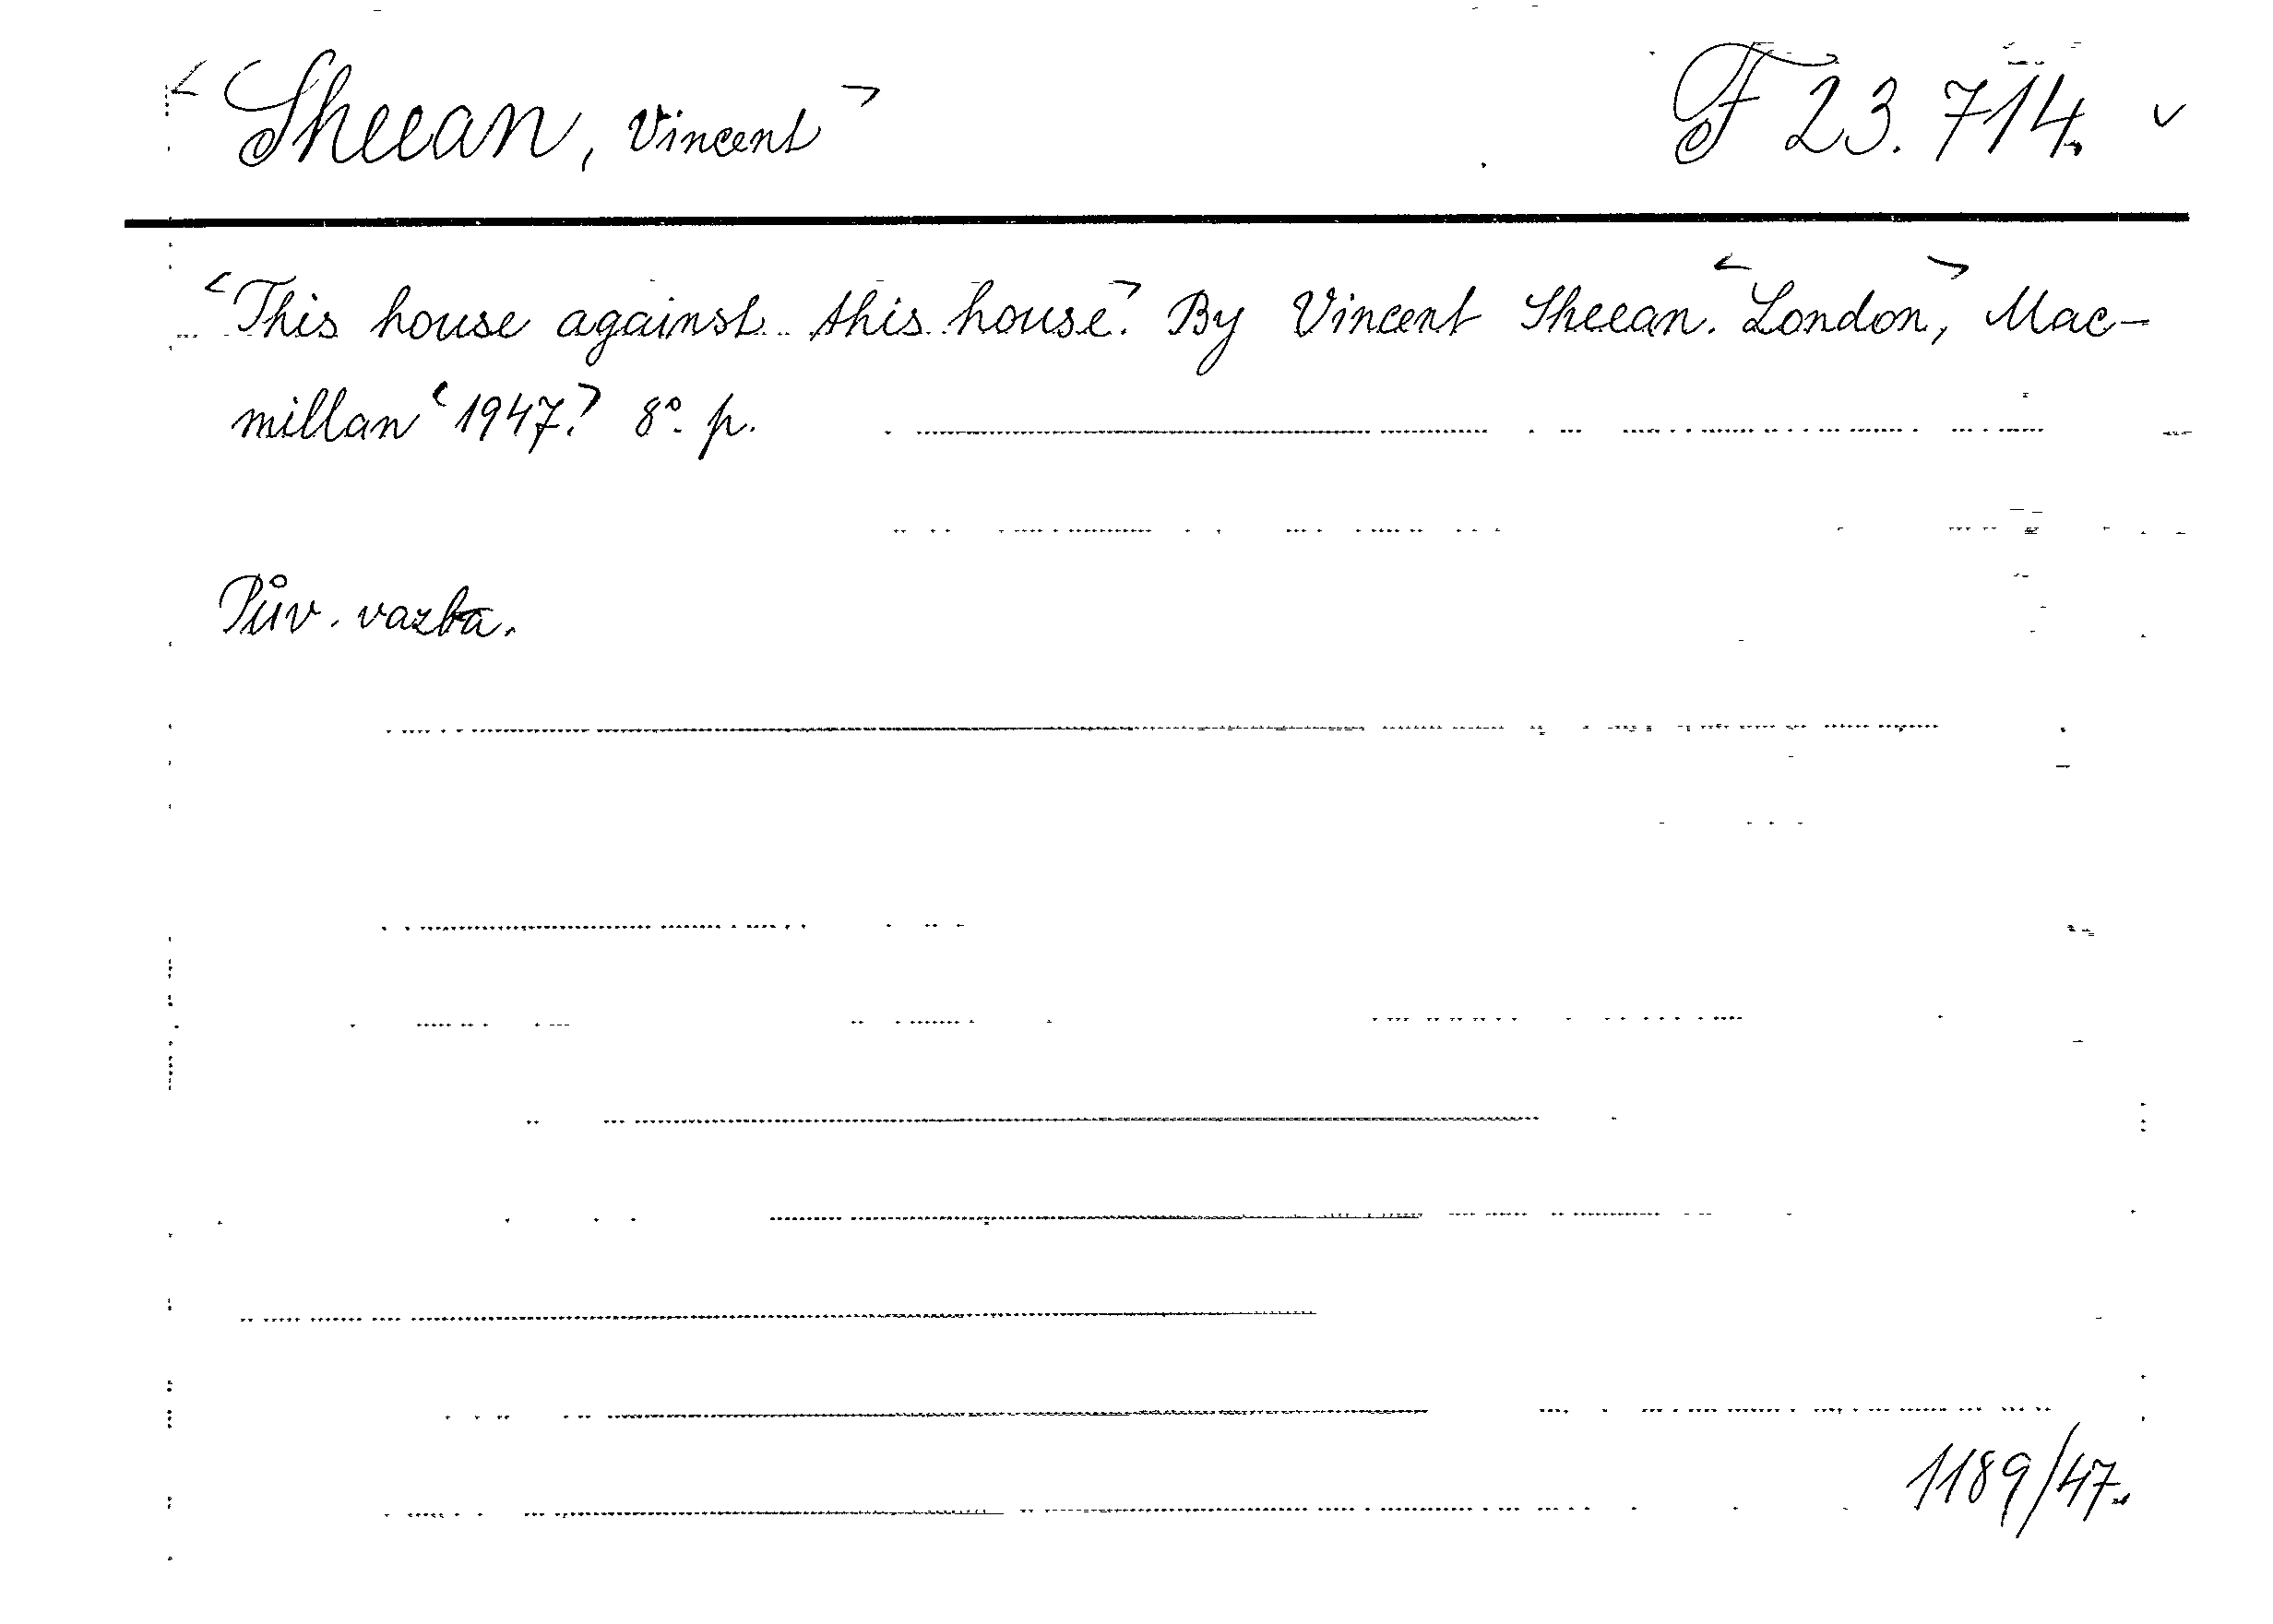 <Sheean, Vincent> F 23.714. v
<This house against this house.> By Vincent Sheean. <London,> Mac-
millan <1947.> 8°. p.
Pův. vazba.
1189/47.